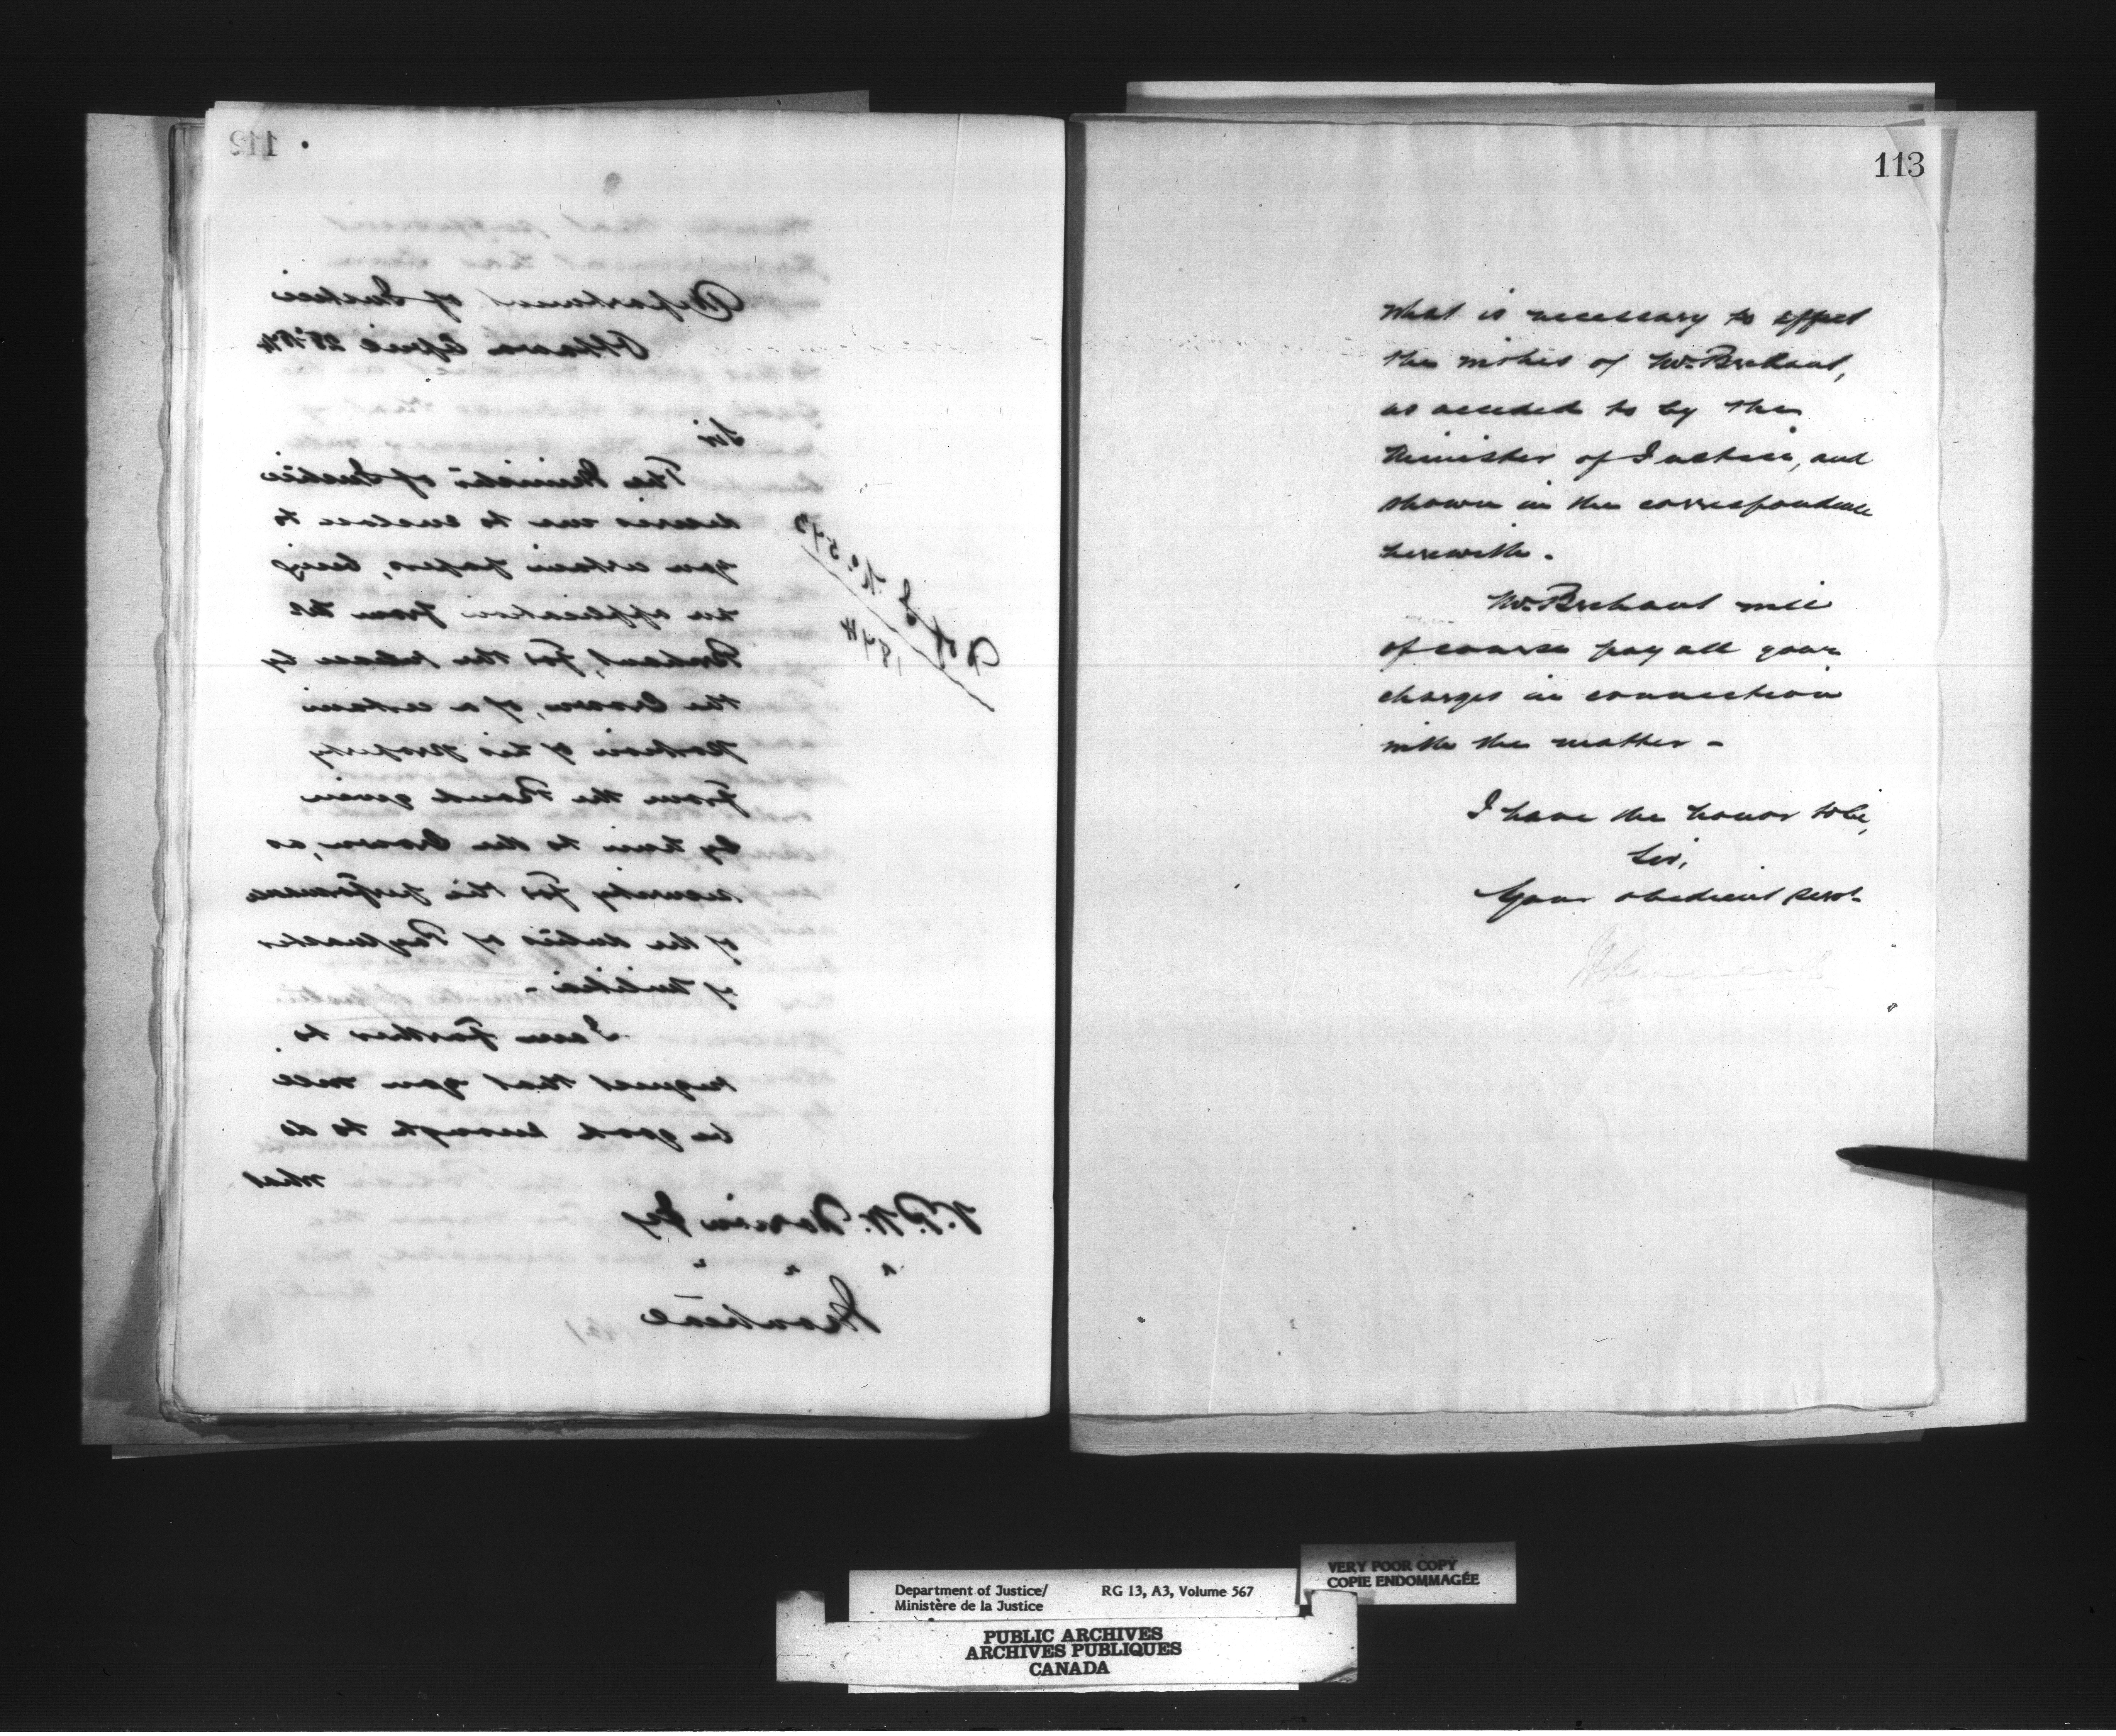 112
Department of Justice
Ottawa April 25th 74
Sir
The Minister of Justice
desires me to enclose to
you certain papers, being
an application from Mr
Brehaut, for the release by
the Crown, of a certain
portion of his property
from the Bond given
by him to the Crown, as
security for the performance
of the duties of Paymaster
of Militia -
I am further to
request that you will
be good enough to do
what
No 543
1874
Montreal
113
what is necessary to effect
the wishes of Mr Brehaut,
as acceded to by the
Minister of Justice, and
shown in the correspondence
herewith.
Mr Brehaut will
of course pay all your
charges in connection
with the matter -
I have the honor to be,
Sir,
Your obedient servt
Department of Justice/
Ministère de la Justice
RG 13, A3, Volume 567
VERY POOR COPY
COPIE ENDOMMAGÉE
PUBLIC ARCHIVES
ARCHIVES PUBLIQUES
CANADA